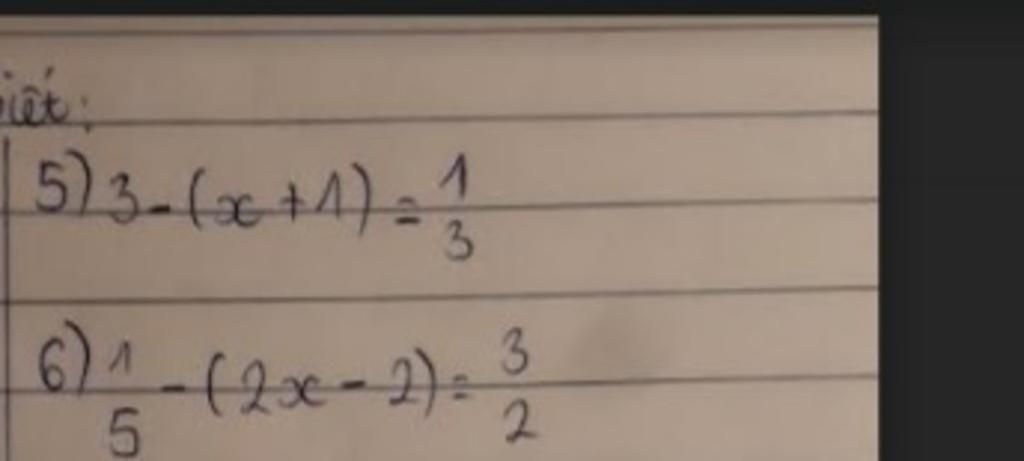 biết:
5) 3 - (x + 1) = 1/3
6) 1/5 - (2x - 2) = 3/2